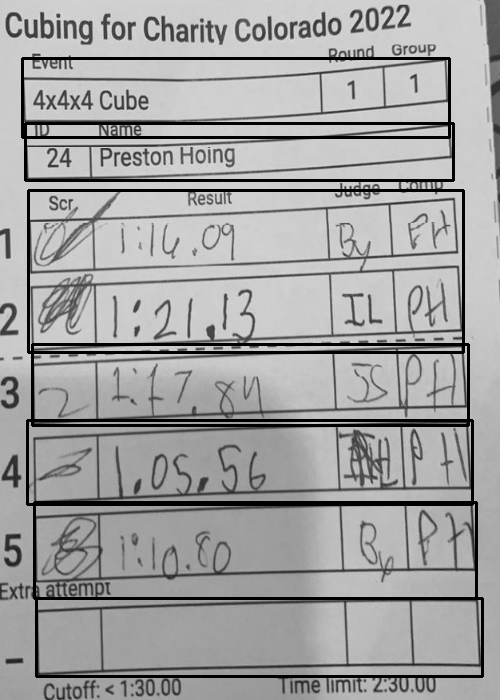 Cubing for Charity Colorado 2022
Event Round Group
4x4x4 Cube 1 1
ID Name
24 Preston Hoing
Scr. Result Judge Comp
1 1:16.09 By PH
2 1:21.13 IL PH
3 2 1:17.84 JS PH
4 3 1.05.56 PH
5 1:10.80 By PH
Extra attempt
–
Cutoff: < 1:30.00 Time limit: 2:30.00